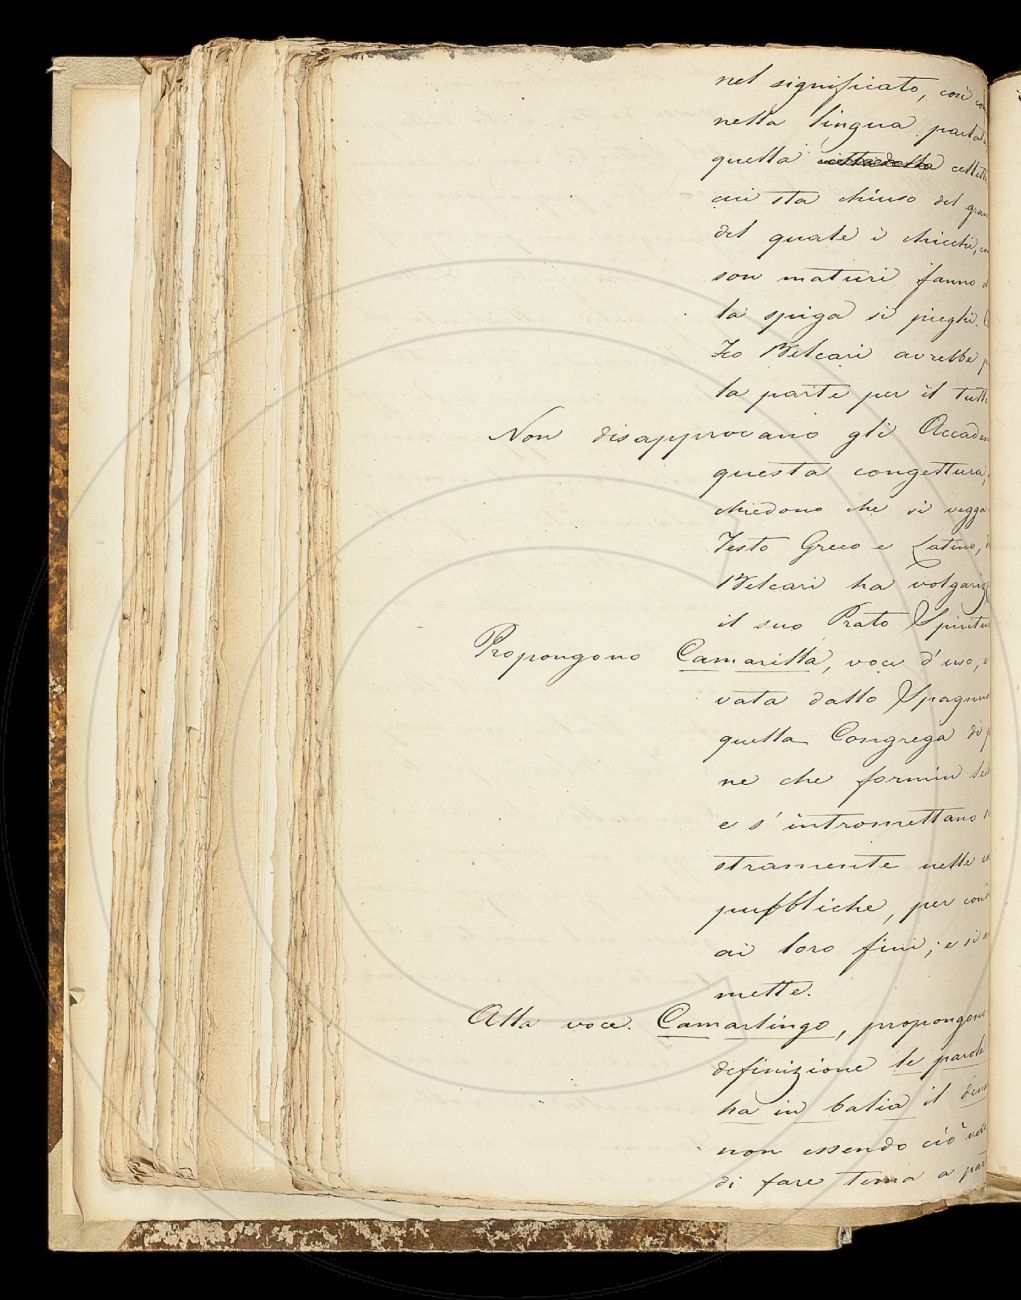 nel significato, così
nella lingua parla
quella cittadella
cui sta chiuso del
del quale i chicchi,
son maturi fanno
la spiga si pieghi.
Zo Belcari avrebbe
la parte per il
Non disapprovano gli
questa congettura,
chiedono che si vegga
Testo Greco e Latino,
Belcari ha
il suo Prato
Propongono Camarilla, voce d'uso,
vata dallo
quella Congrega di
ne che formin
e s'intromettano
stramente nelle
pubbliche, per
ai loro fini; e si
mette.
Alla voce. Camarlingo, propongono
definizione le parole
ha in balìa il
non essendo ciò
di fare tema a